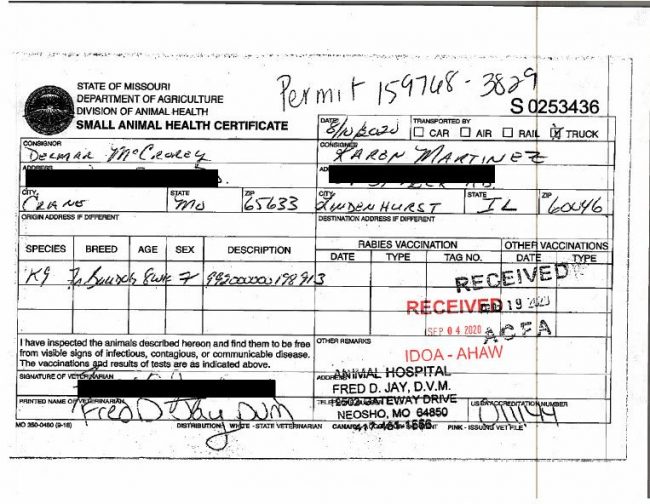 Permit 159768-3829
STATE OF MISSOURI
DEPARTMENT OF AGRICULTURE
DIVISION OF ANIMAL HEALTH
SMALL ANIMAL HEALTH CERTIFICATE
S 0253436
DATE 8/10/2020
TRANSPORTED BY
CAR AIR RAIL TRUCK
CONSIGNOR
Delmar McCrorey
CONSIGNEE
KAREN MARTINEZ
ADDRESS
CITY STATE ZIP
Crane Mo 65633
CITY STATE ZIP
Lindenhurst IL 60046
ORIGIN ADDRESS IF DIFFERENT
DESTINATION ADDRESS IF DIFFERENT
SPECIES BREED AGE SEX DESCRIPTION
RABIES VACCINATION OTHER VACCINATIONS
DATE TYPE TAG NO. DATE TYPE
K9 8wk F
RECEIVED
19 2020
ACFA
RECEIVED
SEP 04 2020
IDOA - AHAW
I have inspected the animals described hereon and find them to be free
from visible signs of infectious, contagious, or communicable disease.
The vaccinations and results of tests are as indicated above.
OTHER REMARKS
SIGNATURE OF VETERINARIAN
ANIMAL HOSPITAL
FRED D. JAY, D.V.M.
2502 GATEWAY DRIVE
NEOSHO, MO 64850
417-451-1556
PRINTED NAME OF VETERINARIAN
Fred D Jay DVM
USDA ACCREDITATION NUMBER
011144
MO 350-0460 (9-18)
DISTRIBUTION: WHITE - STATE VETERINARIAN PINK - ISSUING VET FILE